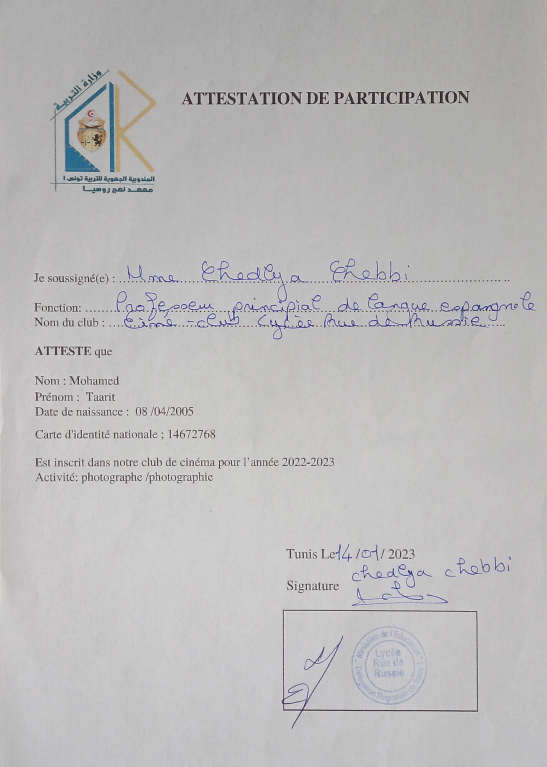 وزارة التربية
ATTESTATION DE PARTICIPATION
المندوبية الجهوية للتربية تونس 1
معهد نهج روسيا
Je soussigné(e) : Mme Chedlya Chebbi
Fonction: Professeur principal de langue espangnole
Nom du club : Ciné-club Lycée Rue de Russie
ATTESTE que
Nom : Mohamed
Prénom : Taarit
Date de naissance : 08 /04/2005
Carte d'identité nationale : 14672768
Est inscrit dans notre club de cinéma pour l'année 2022-2023
Activité: photographe /photographie
Tunis Le 14 /01/ 2023
chedlya chebbi
Signature
Ministère de l'Education
Lycée
Rue de
Russie